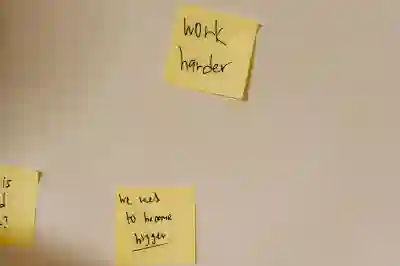 work
harder
is
d
?
we need
to become
bigger